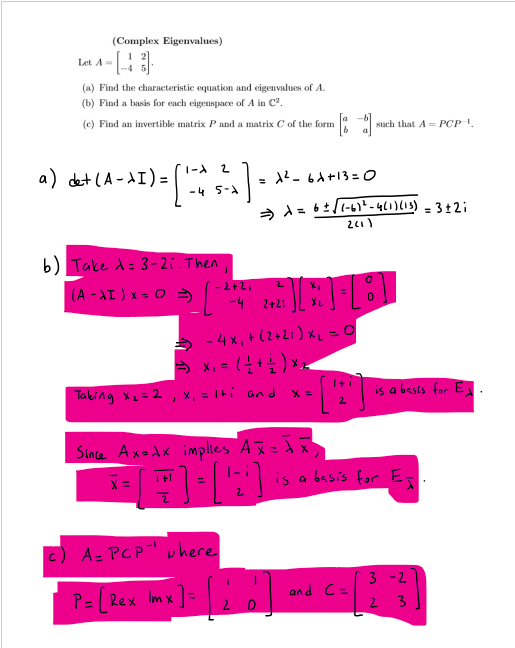 (Complex Eigenvalues)
Let A = [1 2; -4 5].
(a) Find the characteristic equation and eigenvalues of A.
(b) Find a basis for each eigenspace of A in ℂ².
(c) Find an invertible matrix P and a matrix C of the form [a -b; b a] such that A = PCP⁻¹.
a) det(A-λI) = [1-λ 2; -4 5-λ] = λ² - 6λ + 13 = 0
⇒ λ = (6 ± √((-6)² - 4(1)(13))) / 2(1) = 3 ± 2i
b) Take λ = 3-2i. Then,
(A-λI)x = 0 ⇒ [-2+2i 2; -4 2+2i][x₁; x₂] = [0; 0]
⇒ -4x₁ + (2+2i)x₂ = 0
⇒ x₁ = (1/2 + i/2)x₂
Taking x₂ = 2, x₁ = 1+i and x = [1+i; 2] is a basis for E_λ.
Since Ax = λx implies Ax̄ = λ̄x̄,
x̄ = [i+1; 2]‾ = [1-i; 2] is a basis for E_λ̄.
c) A = PCP⁻¹ where
P = [Re x Im x] = [1 1; 2 0] and C = [3 -2; 2 3]